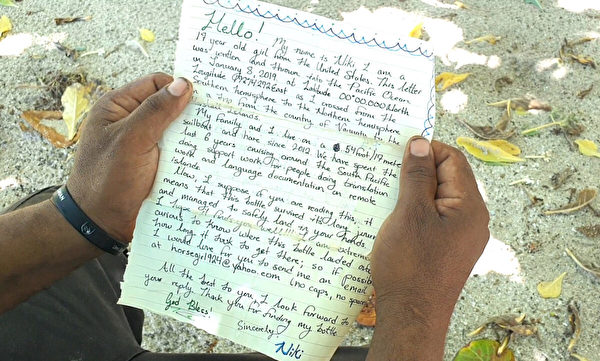 Hello! My name is Niki. I am a
19 year old girl from the United States. This letter
was written and thrown into the Pacific Ocean
on January 8, 2019 at Latitude 00°00.000 North
Longitude
East as I crossed from the
Southern hemisphere to the Northern hemisphere
on a trip from the country of Vanuatu to the
Islands.
My family and I live on a 54 foot/17 meter
sailboat and have since 2012. We have spent the
last 6 years cruising around the South Pacific
doing support work for people doing translation
work and language documentation on remote
islands.
Now, I suppose if you are reading this, it
means that this bottle survived its long journey
and managed to safely land in your hands.
I hope it finds you well!!! I am extremely
curious to know where this bottle landed and
how long it took to get there; so if possible
I would love for you to send me an email
at horsegirl924@yahoo.com (no caps, no spaces)
All the best to you, I look forward to
your reply. Thank you for finding my bottle.
God Bless!
Sincerely,
Niki